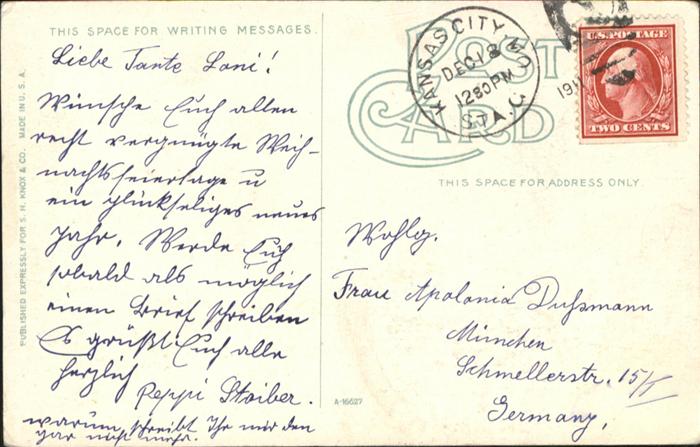 THIS SPACE FOR WRITING MESSAGES.
Liebe Tante Loni!
Wünsche Euch allen
recht vergnügte Weih-
nachtsfeiertage u
ein glückseliges neues
Jahr. Werde Euch
sobald als möglich
einen Brief schreiben
Es grüßt Euch alle
herzlich
Peppi Stoiber.
warum schreibt Ihr mir den
gar nicht mehr.
PUBLISHED EXPRESSLY FOR S. H. KNOX & CO. MADE IN U. S. A.
POST
CARD
KANSAS CITY, MO.
DEC 18
1230PM
STA. C
1911
U.S. POSTAGE
TWO CENTS
THIS SPACE FOR ADDRESS ONLY.
Wohlg.
Frau Apolonia Dußmann
München
Schmellerstr. 15/
Germany,
A-16627